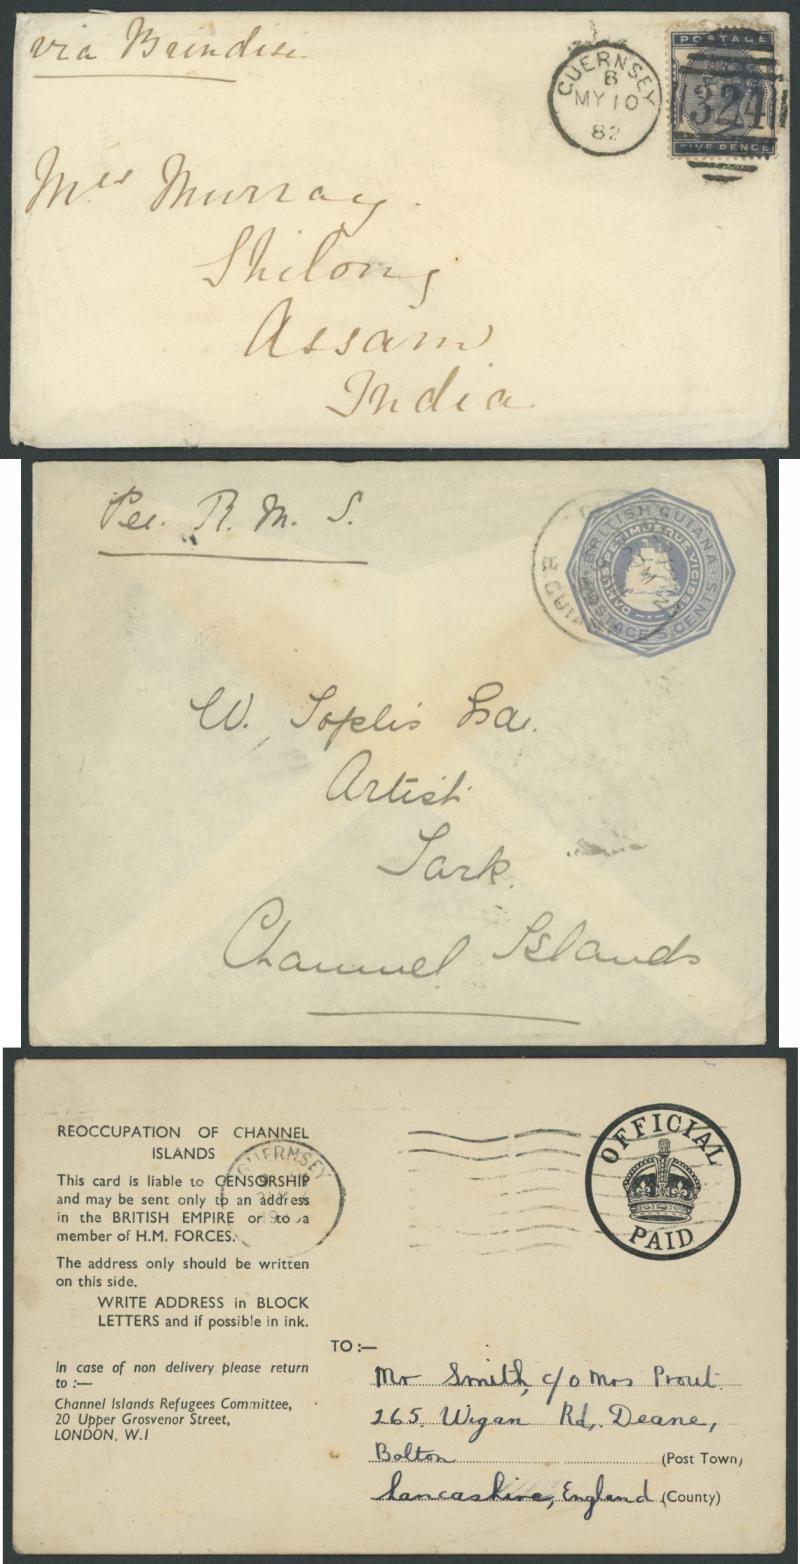 via Brindisi
GUERNSEY
B
MY 10
82
POSTAGE
324
FIVE PENCE
Mrs Murray.
Shilong
Assam
India
Per. R. M. S.
BRITISH GUIANA
DAMUS PETIMUSQUE VICISSIM
POSTAGE 5 CENTS
B. GUIANA
W. Toplis Esq.
Artist
Sark.
Channel Islands
REOCCUPATION OF CHANNEL
ISLANDS
GUERNSEY
This card is liable to CENSORSHIP
and may be sent only to an address
in the BRITISH EMPIRE or to a
member of H.M. FORCES.
The address only should be written
on this side.
WRITE ADDRESS in BLOCK
LETTERS and if possible in ink.
In case of non delivery please return
to :—
Channel Islands Refugees Committee,
20 Upper Grosvenor Street,
LONDON, W.1
OFFICIAL
PAID
TO :—
Mr Smith, c/o Mrs Prout.
265. Wigan Rd, Deane,
Bolton (Post Town)
Lancashire, England (County)